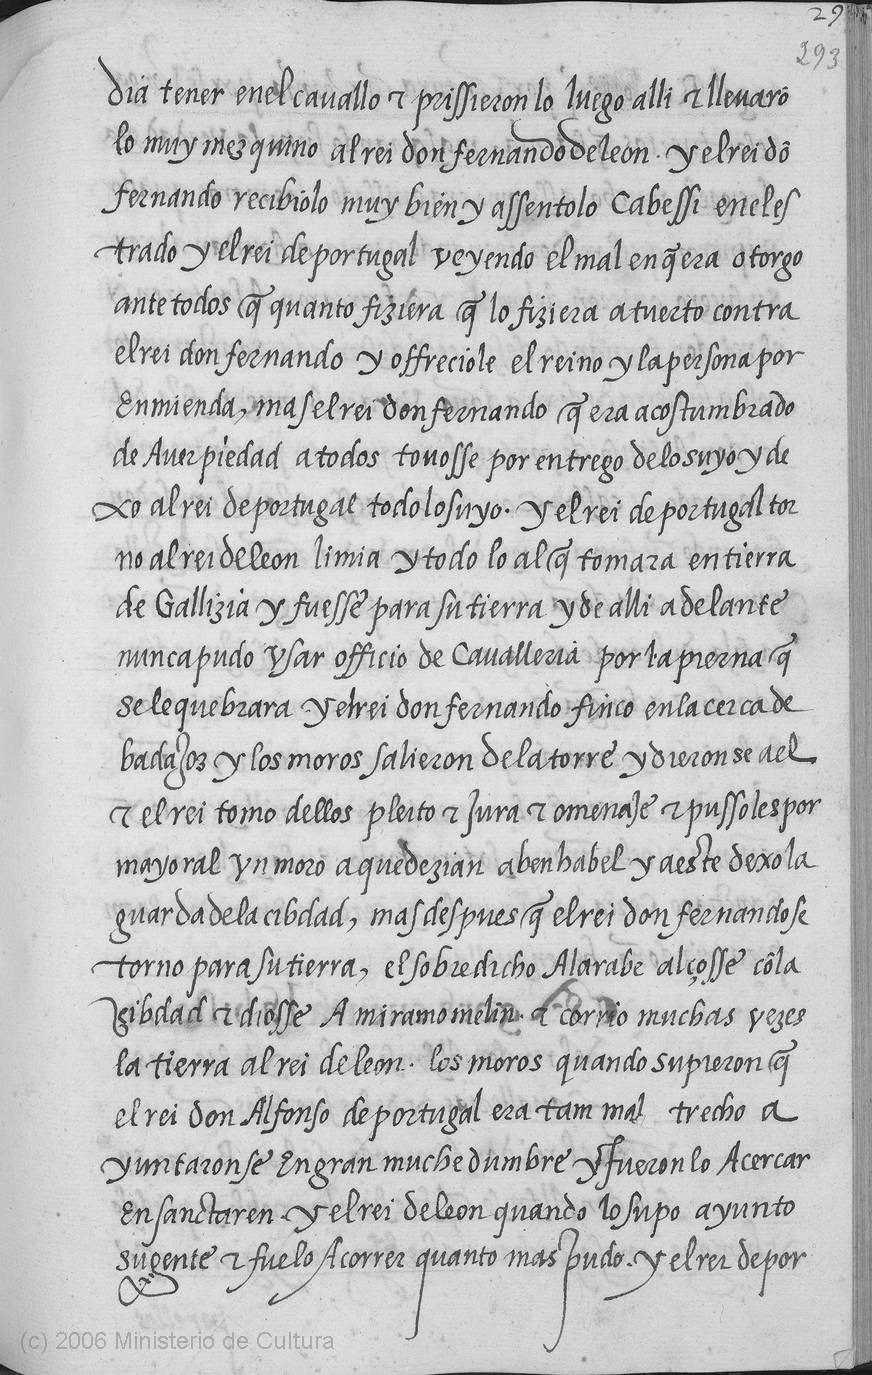 29
293
dia tener enel cavallo ⁊ prissieron lo luego alli ⁊ llevarõ
lo muy mezquino al rei don fernando de leon. y el rei dõ
fernando recibiolo muy bien y assentolo Cabessi en el es
trado y el rei de portugal veyendo el mal en q̃ era otorgo
ante todos q̃ quanto fiziera q̃ lo fiziera a tuerto contra
el rei don fernando y offreciole el reino y la persona por
Enmienda, mas el rei don fernando q̃ era acostumbrado
de Aver piedad a todos tovosse por entrego de lo suyo y de
xo al rei de portugal todo lo suyo. y el rei de portugal tor
no al rei de leon limia y todo lo al q̃ tomara en tierra
de Gallizia y fuesse para su tierra y de alli adelante
nunca pudo Vsar officio de Cavalleria por la pierna q̃
se le quebrara y el rei don fernando finco en la cerca de
badajoz y los moros salieron de la torre y dieron se a el
⁊ el rei tomo dellos pleito ⁊ Jura ⁊ omenaje ⁊ pussoles por
mayoral Vn moro a que dezian abenhabel y a este dexo la
guarda de la cibdad, mas despues q̃ el rei don fernando se
torno para su tierra, el sobredicho Alarabe alçosse cõ la
cibdad ⁊ diosse A miramomelin. ⁊ corrio muchas vezes
la tierra al rei de leon. los moros quando supieron q̃
el rei don Alfonso de portugal era tam mal trecho a
yuntaronse En gran muchedumbre y fueron lo Acercar
En sanctaren. y el rei de leon quando lo supo ayunto
su gente ⁊ fuelo Acorrer quanto mas pudo. y el rei de por
(c) 2006 Ministerio de Cultura